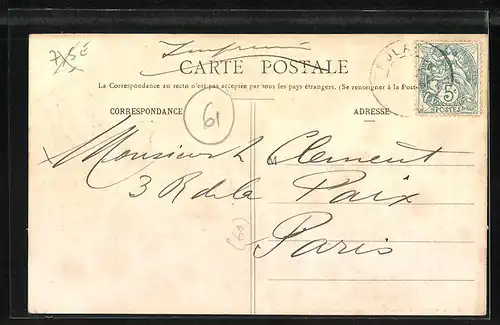 Imprimé
CARTE POSTALE
La Correspondance au recto n'est pas acceptée par tous les pays étrangers. (Se renseigner à la Poste
CORRESPONDANCE
ADRESSE
61
Monsieur L Clement
3 R de la Paix
Paris
(61)
5c
POSTES